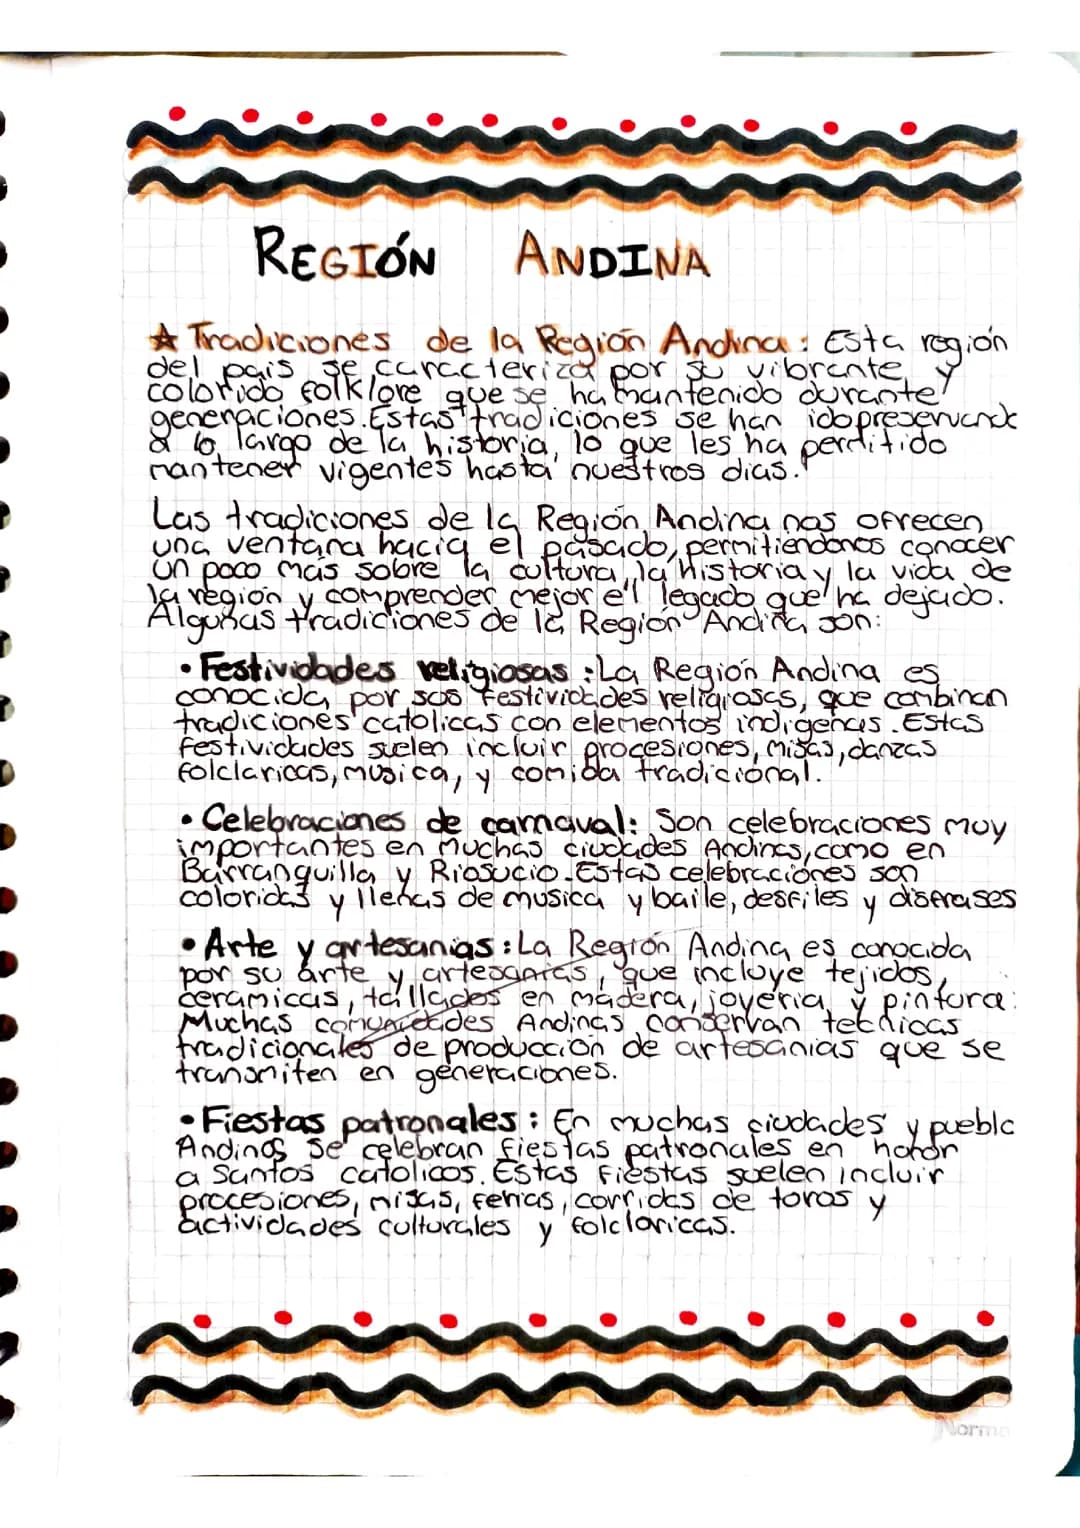 REGIÓN ANDINA
★ Tradiciones de la Región Andina: Esta región
del pais se caracteriza por su vibrante y
colorido folklore que se ha mantenido durante
generaciones. Estas tradiciones se han ido preservando
a lo largo de la historia, lo que les ha perditido
mantener vigentes hasta nuestros dias.
Las tradiciones de la Región Andina nos ofrecen
una ventana hacia el pasado, permitiendonos conocer
un poco más sobre la cultura, la historia y la vida de
la región y comprender mejor el legado que ha dejado.
Algunas tradiciones de la Región Andina son:
• Festividades religiosas: La Región Andina es
conocida por sus festividades religiosas, que combinan
tradiciones catolicas con elementos indigenas. Estas
festividades suelen incluir procesiones, misas, danzas
folclaricas, musica, y comida tradicional.
• Celebraciones de carnaval: Son celebraciones muy
importantes en muchas ciudades Andinas, como en
Barranquilla y Riosucio. Estas celebraciones son
coloridas y llenas de musica y baile, desfiles y disfrases
• Arte y artesanias: La Región Andina es conocida
por su arte y artesanias, que incluye tejidos,
ceramicas, tallados en madera, joyeria, y pintura.
Muchas comunidades Andinas conservan tecnicas
tradicionales de producción de artesanias que se
transmiten en generaciones.
• Fiestas patronales: En muchas ciudades y pueblo
Andinos se celebran fiestas patronales en honor
a Santos catolicos. Estas fiestas suelen incluir
procesiones, misas, ferias, corridas de toros y
actividades culturales y folcloricas.
Norma